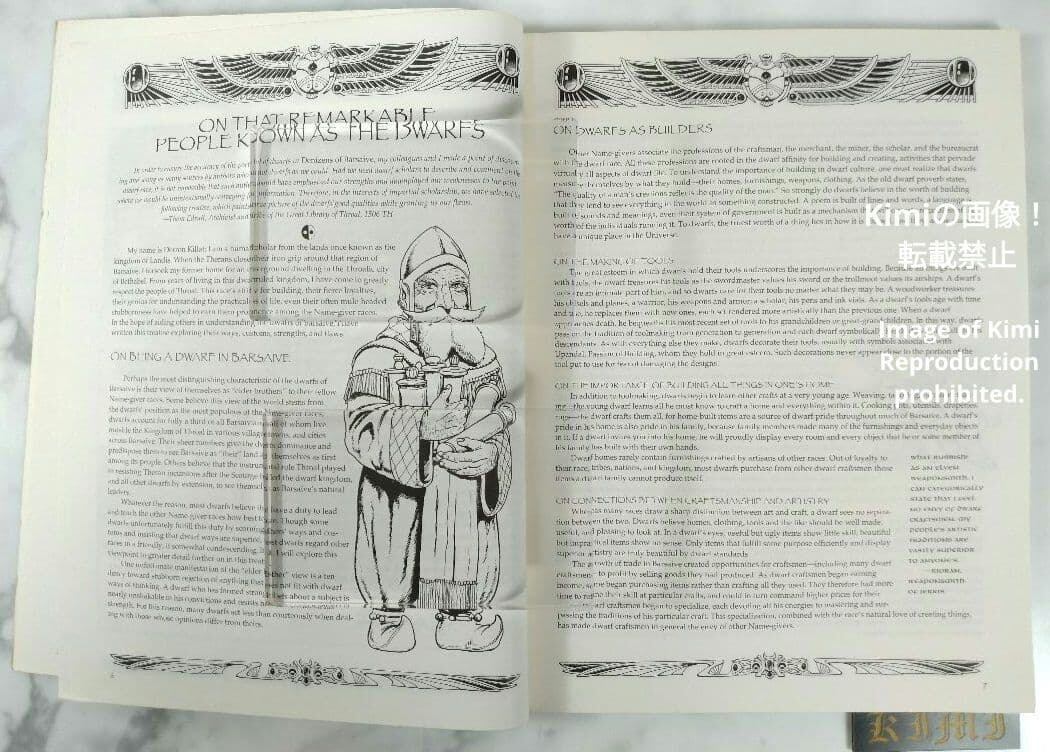 ON THAT REMARKABLE
PEOPLE KNOWN AS THE DWARFS
In order to ensure the accuracy of the portrait of dwarfs in Denizens of Barsaive, my colleagues and I made a point of
—Thom Edrull, Archivist and Scribe of the Great Library of Throal, 1506 TH
My name is Derron Killat; I am a human scholar from the lands once known as the
kingdom of Landis. When the Therans closed their iron grip around that region of
Barsaive, I forsook my former home for an underground dwelling in the Throalic city
of Bethabal. From years of living in the dwarf-ruled kingdom, I have come to greatly
respect the people of Throal. This race's affinity for building, their fierce loyalties,
their genius for understanding the practicalities of life, even their often mule-headed
stubbornness have helped to earn them prominence among the Name-giver races.
In the hope of aiding others in understanding the dwarfs of Barsaive, I have
written this treatise exploring their ways, customs, strengths, and flaws.
ON BEING A DWARF IN BARSAIVE
Perhaps the most distinguishing characteristic of the dwarfs of
Barsaive is their view of themselves as "elder brothers" to their fellow
Name-giver races. Some believe this view of the world stems from
the dwarfs' position as the most populous of the Name-giver races;
dwarfs account for fully a third of all Barsaive, half of whom live
inside the Kingdom of Throal in various villages, towns, and cities
across Barsaive. Their sheer numbers give them dominance and
predispose them to see Barsaive as "their" land and themselves as first
among its people. Others believe that the instrumental role Throal played
in resisting Theran incursions after the Scourge led the dwarf kingdom,
and all other dwarfs by extension, to see themselves as Barsaive's natural
leaders.
Whatever the reason, most dwarfs believe they have a duty to lead
and teach the other Name-giver races how best to live. Though some
dwarfs unfortunately fulfill this duty by scorning others' ways and customs
and insisting that dwarf ways are superior, most dwarfs regard other
races in a friendly, if somewhat condescending, light. I will explore this
viewpoint in greater detail further on in this treatise.
One unfortunate manifestation of the "elder brother" view is a tendency
toward stubborn rejection of anything that does not fit with dwarf
ways of thinking. A dwarf who has formed strong beliefs about a subject is
nearly unshakable in his convictions and resists
strength. For this reason, many dwarfs act less than courteously when dealing
with those whose opinions differ from theirs.
6
ON DWARFS AS BUILDERS
Other Name-givers associate the professions of the craftsman, the merchant, the miner, the scholar, and the bureaucrat
with the dwarf race. All these professions are rooted in the dwarf affinity for building and creating, activities that pervade
virtually all aspects of dwarf life. To understand the importance of building in dwarf culture, one must realize that dwarfs
measure themselves by what they build—their homes, furnishings, weapons, clothing. As the old dwarf proverb states,
"The quality of a man's creations reflects the quality of the man." So strongly do dwarfs believe in the worth of building
that they tend to see everything in the world as something constructed. A poem is built of lines and words, a language is
built of sounds and meanings, even their system of government is built as a mechanism
worth of the individuals running it. To dwarfs, the truest worth of a thing lies in how it is
have a unique place in the Universe.
ON THE MAKING OF TOOLS
The great esteem in which dwarfs hold their tools underscores the importance of building. Because
with tools, the dwarf treasures his tools as the swordmaster values his sword or the trollmoot values its airships. A dwarf's
tools are an intimate part of him, and so dwarfs care for their tools no matter what they may be. A woodworker treasures
his chisels and planes, a warrior, his weapons and armor, a scholar, his pens and ink vials. As a dwarf's tools age with time
and use, he replaces them with new ones, each set rendered more artistically than the previous one. When a dwarf
approaches death, he bequeaths his most recent set of tools to his grandchildren or great-grandchildren. In this way, dwarfs
pass on the tradition of toolmaking from generation to generation and each dwarf symbolically
descendants. As with everything else they make, dwarfs decorate their tools, usually with symbols associated with
Upandal, Passion of Building, whom they hold in great esteem. Such decorations never appear close to the portion of the
tool put to use for fear of damaging the designs.
ON THE IMPORTANCE OF BUILDING ALL THINGS IN ONE'S HOME
In addition to toolmaking, dwarfs begin to learn other crafts at a very young age. Weaving,
the young dwarf learns all he must know to craft a home and everything within it. Cooking pots, utensils, draperies,
rugs—the dwarf crafts them all, for home-built items are a source of dwarf pride throughout much of Barsaive. A dwarf's
pride in his home is also pride in his family, because family members made many of the furnishings and everyday objects
in it. If a dwarf invites you into his home, he will proudly display every room and every object that he or some member of
his family has built with their own hands.
Dwarf homes rarely contain furnishings crafted by artisans of other races. Out of loyalty to
their race, tribes, nations, and kingdom, most dwarfs purchase from other dwarf craftsmen those
items a dwarf family cannot produce itself.
ON CONNECTIONS BETWEEN CRAFTSMANSHIP AND ARTISTRY
Whereas many races draw a sharp distinction between art and craft, a dwarf sees no separation
between the two. Dwarfs believe homes, clothing, tools and the like should be well made,
useful, and pleasing to look at. In a dwarf's eyes, useful but ugly items show little skill, beautiful
but impractical items show no sense. Only items that fulfill some purpose efficiently and display
superior artistry are truly beautiful by dwarf standards.
The growth of trade in Barsaive created opportunities for craftsmen—including many dwarf
craftsmen—to profit by selling goods they had produced. As dwarf craftsmen began earning
income, some began purchasing items rather than crafting all they used. They therefore had more
time to refine their skill at particular crafts, and could in turn command higher prices for their
dwarf craftsmen began to specialize, each devoting all his energies to mastering and surpassing
the traditions of his particular craft. This specialization, combined with the race's natural love of creating things,
has made dwarf craftsmen in general the envy of other Name-givers.
WHAT RUBBISH!
AS AN ELVEN
WEAPONSMITH, I
CAN CATEGORICALLY
STATE THAT I FEEL
NO ENVY OF DWARF
CRAFTSMEN. MY
PEOPLE'S ARTISTIC
TRADITIONS ARE
VASTLY SUPERIOR
TO ANYONE'S.
WEAPONSMITH
OF JERRIS
7
Kimiの画像！
転載禁止
Image of Kimi
Reproduction
prohibited.
KIMI